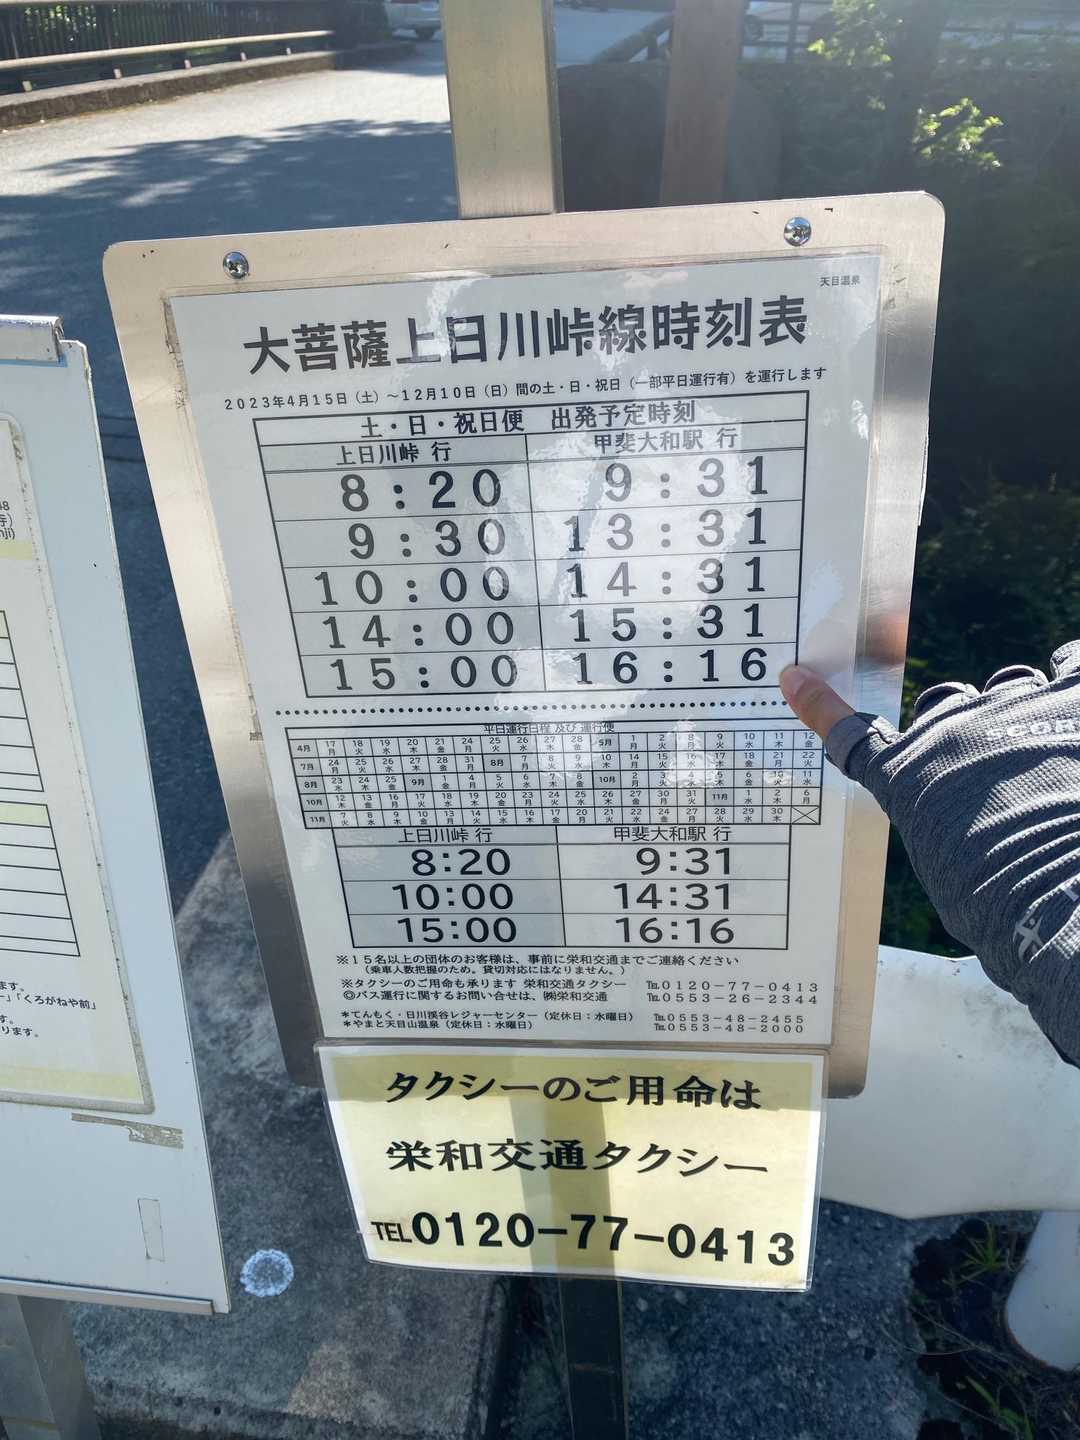 天目温泉
大菩薩上日川峠線時刻表
2023年4月15日（土）～12月10日（日）間の土・日・祝日（一部平日運行有）を運行します
土・日・祝日便 出発予定時刻
上日川峠 行 甲斐大和駅 行
8:20 9:31
9:30 13:31
10:00 14:31
14:00 15:31
15:00 16:16
平日運行日程 及び 運行便
上日川峠 行 甲斐大和駅 行
8:20 9:31
10:00 14:31
15:00 16:16
※15名以上の団体のお客様は、事前に栄和交通までご連絡ください
（乗車人数把握のため。貸切対応にはなりません。）
※タクシーのご用命も承ります 栄和交通タクシー ℡0120-77-0413
◎バス運行に関するお問い合せは、㈱栄和交通 ℡0553-26-2344
＊てんもく・日川渓谷レジャーセンター（定休日：水曜日） ℡0553-48-2455
＊やまと天目山温泉（定休日：水曜日） ℡0553-48-2000
タクシーのご用命は
栄和交通タクシー
TEL0120-77-0413
」「くろがねや前」